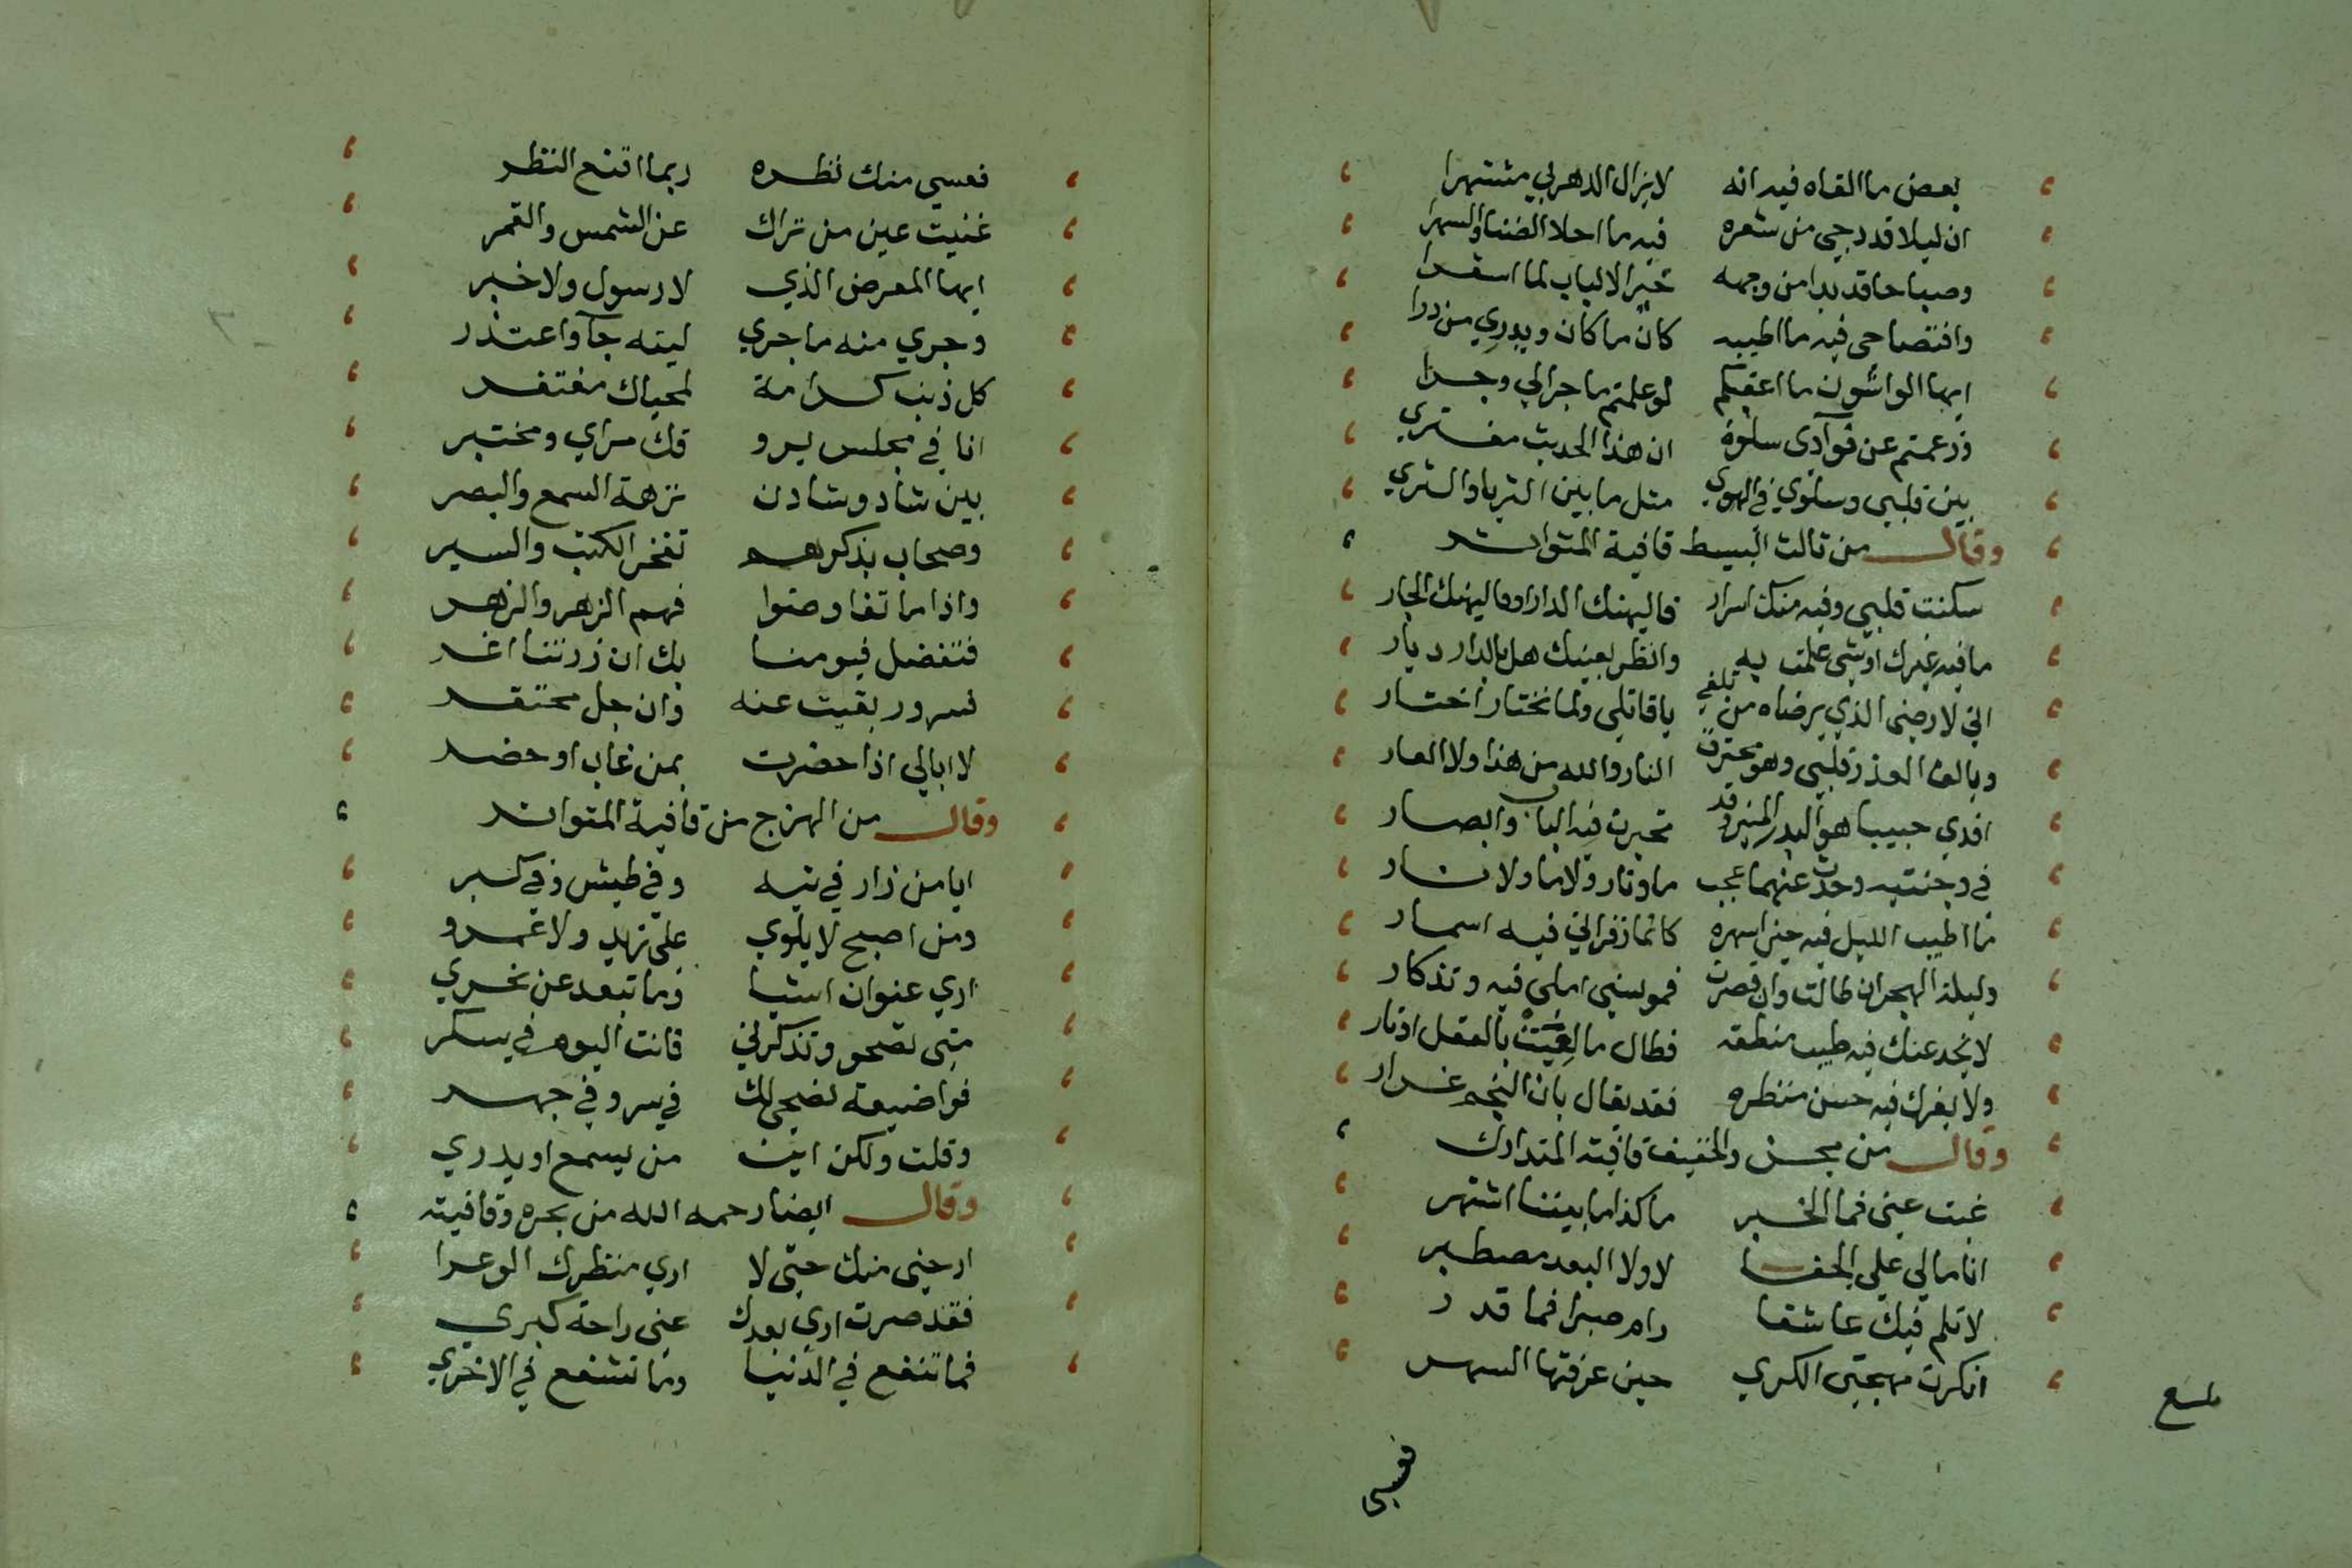 بعض ما القاه فيه انه لا يزال الدهر بي مشتهرا
ان ليلا قد دجي من شعره فيه ما احلا الضنا والسهرا
وصباحا قد بدا من وجهه حير الالباب لما اسفرا
وافتضاحي فيه ما اطيبه كان ما كان ويدري من درا
ايها الواشون ما اغفلكم لو علمتم ما جرا لي وجرا
وزعمتم عن فوآدى سلوة ان هذا الحديث مفتري
بين قلبي وسلوي في الهوي مثل ما بين الثريا والثري
وقال من ثالث البسيط قافية المتواتر
سكنت قلبي وفيه منك اسرار فاليهنك الدار او فاليهنك الجار
ما فيه غيرك او شي علمت به وانظر بعينيك هل بالدار ديار
اني لارضى الذي يرضاه من تلفي يا قاتلي ولما تختار اختار
وبالف العذر قلبي وهو محترق النار والله من هذا ولا العار
افدي حبيبا هو البدر المنير وقد تحيرت فيه الباب وابصار
في وجنتيه وحدث عنهما عجب ما ونار ولا ما ولا نار
ما اطيب الليل فيه حين اسهره كانما زفراتي فيه اسمار
وليلة الهجران طالت وان قصرت فمونسي املي فيه وتذكار
لا يخدعنك فيه طيب منطقه فطال ما لعبت بالعقل اوتار
ولا يغرك فيه حسن منظره فقد يقال بان النجم غرار
وقال من مجزو الخفيف قافيته المتدارك
غبت عني فما الخبر ما كذا ما بيننا اشتهر
انا مالي علي الجفا لا ولا البعد مصطبر
لا تلم فيك عاشقا رام صبرا فما قدر
انكرت مهجتي الكري حين عرفتها السهر
فعسي
فعسي منك نظره ربما اقنع النظر
غنيت عين من تراك عن الشمس والقمر
ايها المعرض الذي لا رسول ولا خبر
وجري منه ما جري ليته جآ واعتذر
كل ذنب كرامة لمحياك مغتفر
انا في مجلس يرو قك مراي ومختبر
بين شاد وشادن نزهة السمع والبصر
وصحاب بذكرهم تفخر الكتب والسير
واذا ما تفاوضوا فهم الزهر والزهر
فتفضل فيومنا بك ان زرتنا اغر
فسرور بقيت عنه وان جل محتقر
لا ابالي اذا حضرت بمن غاب او حضر
وقال من الهزج من قافية المتواتر
ايا من زار في تيه وفي طيش وفي كبر
ومن اصبح لا يلوي علي زيد ولا عمرو
اري عنوان اشيا وما تبعد عن نحري
متى تصحو وتذكرني فانت اليوم في سكر
فواضيعة نصحي لك في سر وفي جهر
وقلت ولكن اين من يسمع او يدري
وقال ايضا رحمه الله من بحره وقافيته
ارحني منك حتى لا اري منظرك الوعرا
فقد صرت اري بعدك عني راحة كبري
فما تنفع في الدنيا وما تشفع في الاخري